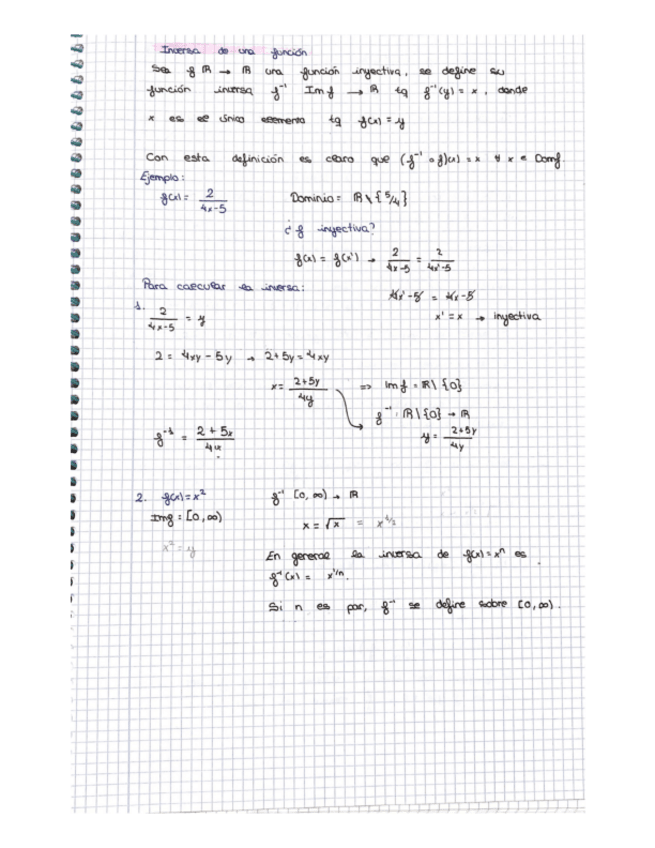 Inversa de una función
Sea f ℝ → ℝ una función inyectiva, se define su
función inversa f⁻¹ Im f → ℝ tq f⁻¹(y) = x, donde
x es el único elemento tq f(x) = y
Con esta definición es claro que (f⁻¹ ∘ f)(x) = x ∀ x ∈ Dom f.
Ejemplo:
f(x) = 2/(4x-5) Dominio = ℝ \ {5/4}
¿f inyectiva?
f(x) = f(x') → 2/(4x-5) = 2/(4x'-5)
Para calcular la inversa: 4x'-5 = 4x-5
x' = x → inyectiva
1. 2/(4x-5) = y
2 = 4xy - 5y → 2+5y = 4xy
x = (2+5y)/4y ⇒ Im f = ℝ \ {0}
f⁻¹: ℝ \ {0} → ℝ
y = (2+5y)/4y
f⁻¹ = (2+5x)/4x
2. f(x) = x² f⁻¹ [0, ∞) → ℝ
Img = [0, ∞)
x = √x = x^1/2
x² = y
En general la inversa de f(x) = xⁿ es
f⁻¹(x) = x^1/n.
Si n es par, f⁻¹ se define sobre [0, ∞).